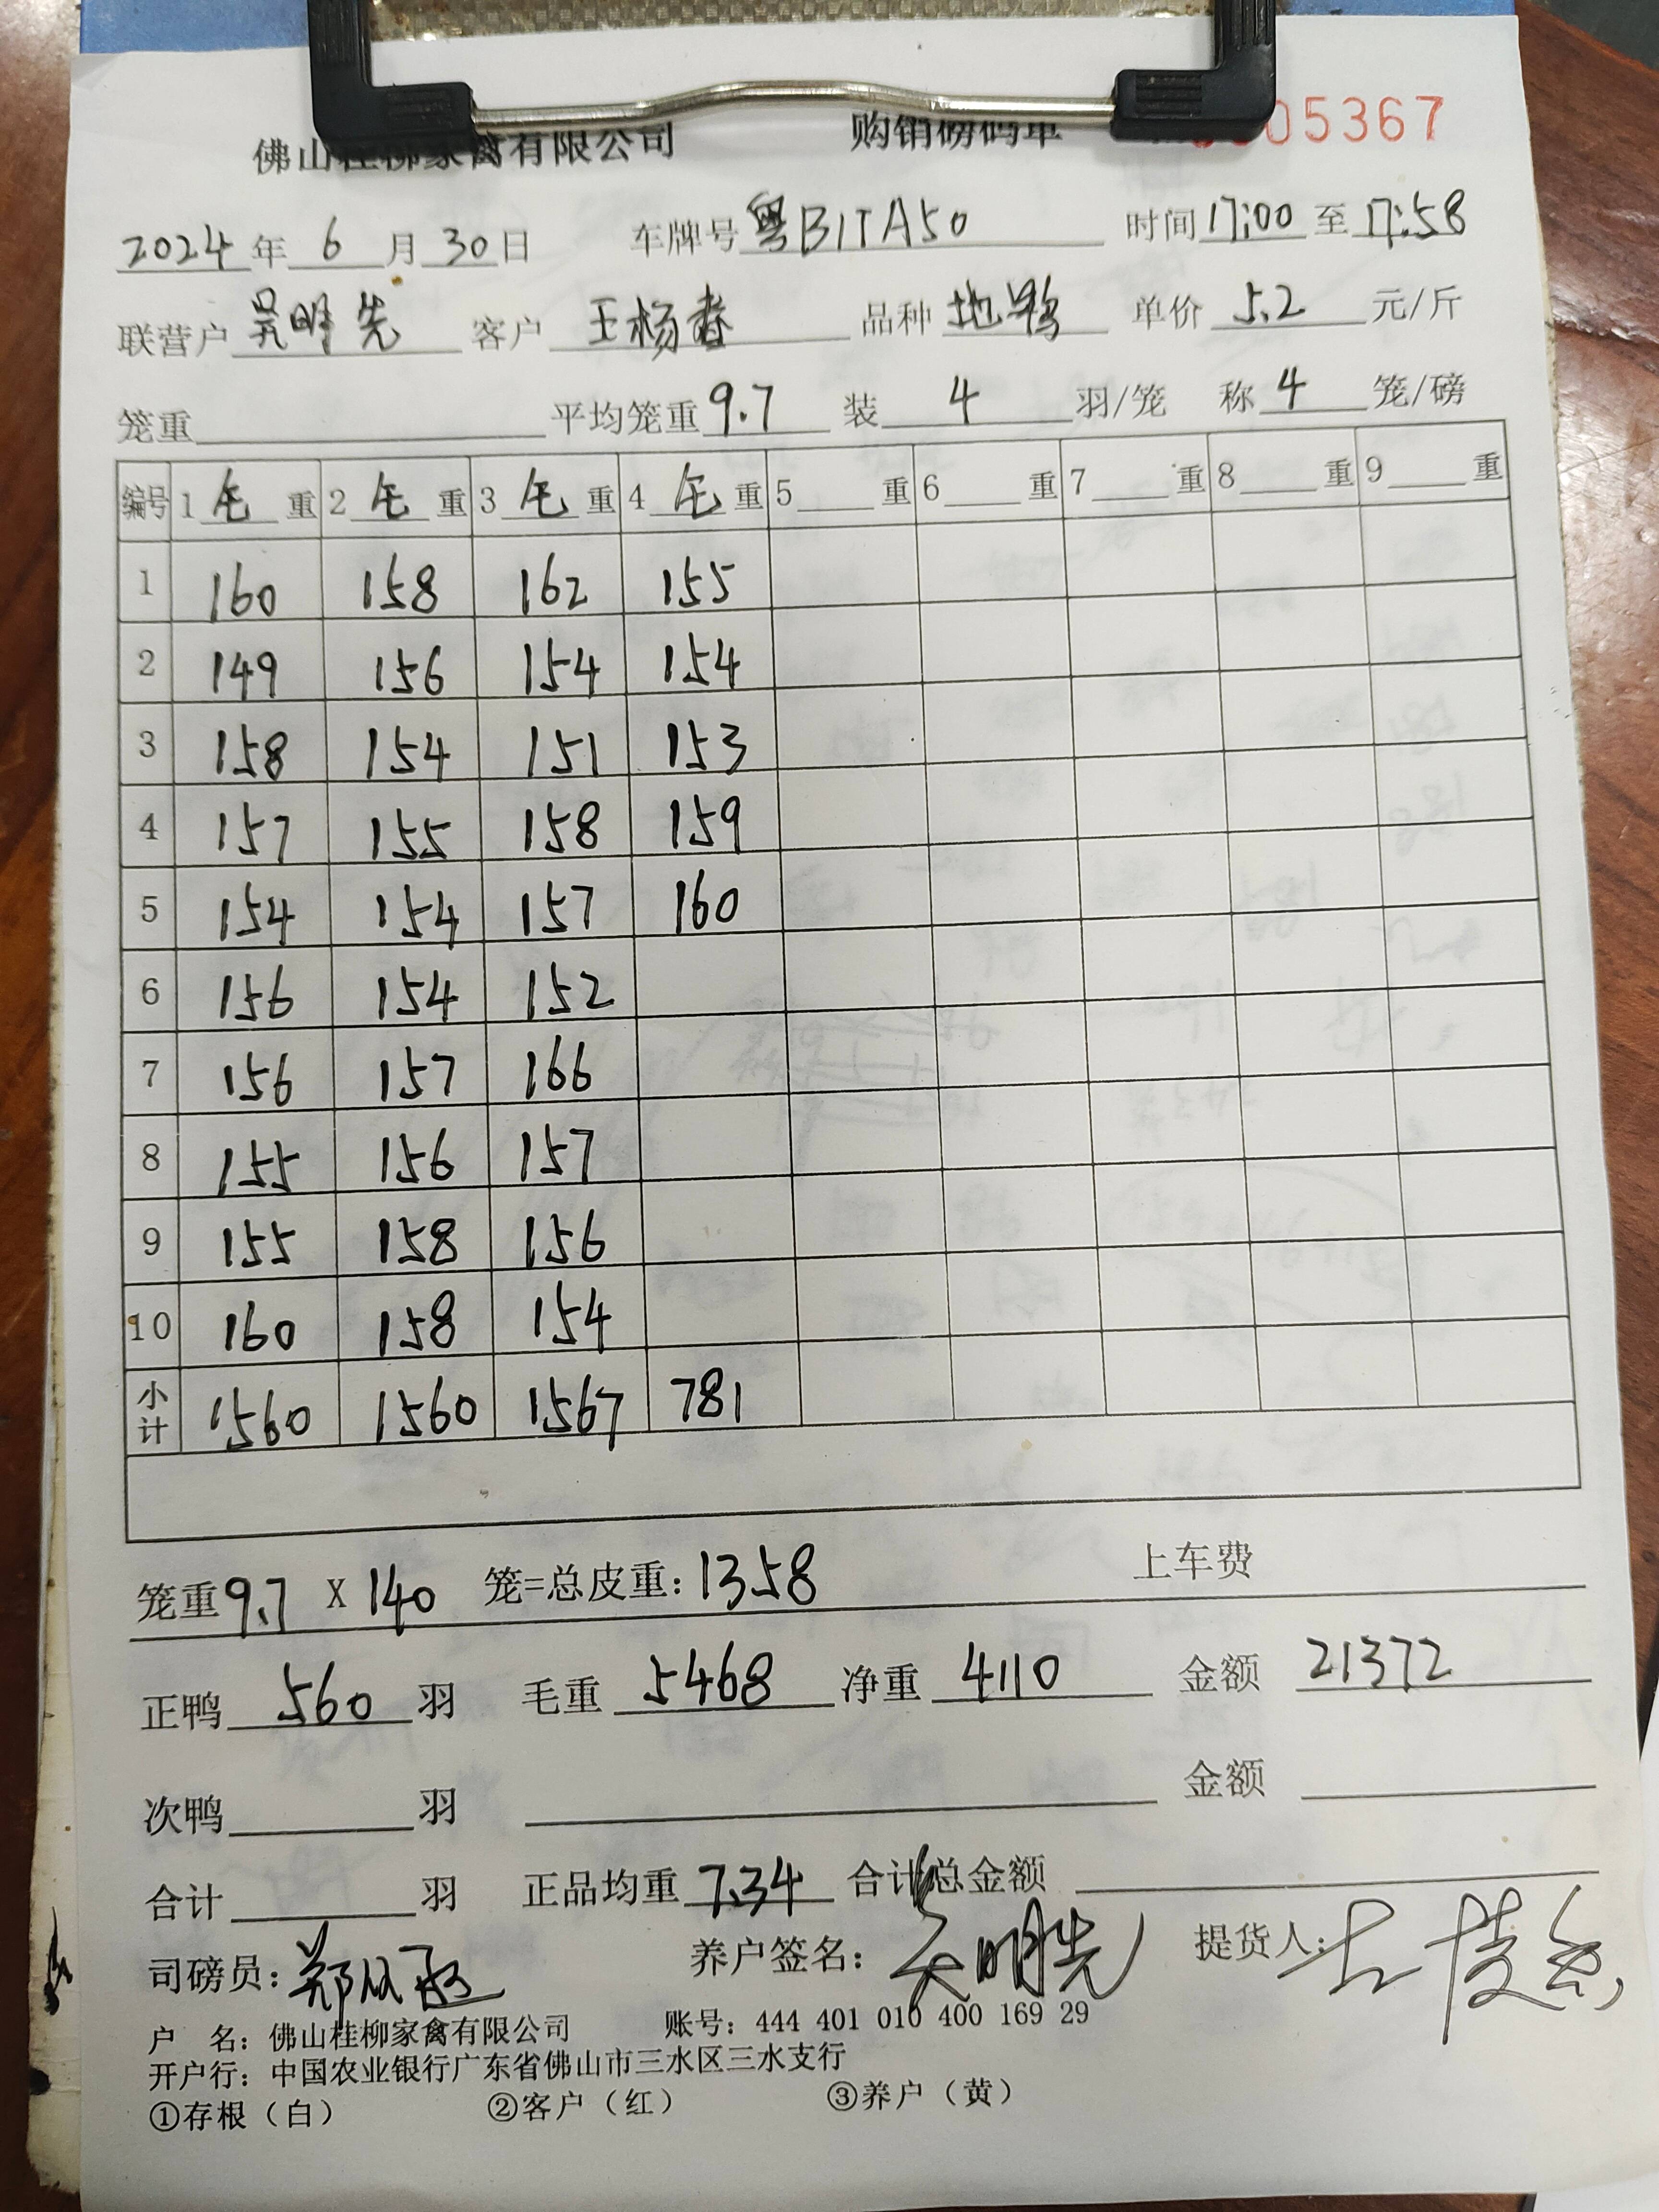 佛山桂柳家禽有限公司 购销磅码单 05367
2024年 6 月 30日 车牌号 粤B1TA50 时间 17:00 至 17:58
联营户 吴明先 客户 王杨春 品种 地鸭 单价 5.2 元/斤
笼重 平均笼重 9.7 装 4 羽/笼 称 4 笼/磅
编号 1 毛 重 2 毛 重 3 毛 重 4 毛 重 5 重 6 重 7 重 8 重 9 重
1 160 158 162 155
2 149 156 154 154
3 158 154 151 153
4 157 155 158 159
5 154 154 157 160
6 156 154 152
7 156 157 166
8 155 156 157
9 155 158 156
10 160 158 154
小计 1560 1560 1567 781
笼重 9.7 X 140 笼=总皮重: 1358 上车费
正鸭 560 羽 毛重 5468 净重 4110 金额 21372
次鸭 羽 金额
合计 羽 正品均重 7.34 合计总金额
司磅员: 养户签名: 吴明先 提货人:
户 名: 佛山桂柳家禽有限公司 账号: 444 401 010 400 169 29
开户行: 中国农业银行广东省佛山市三水区三水支行
①存根（白） ②客户（红） ③养户（黄）